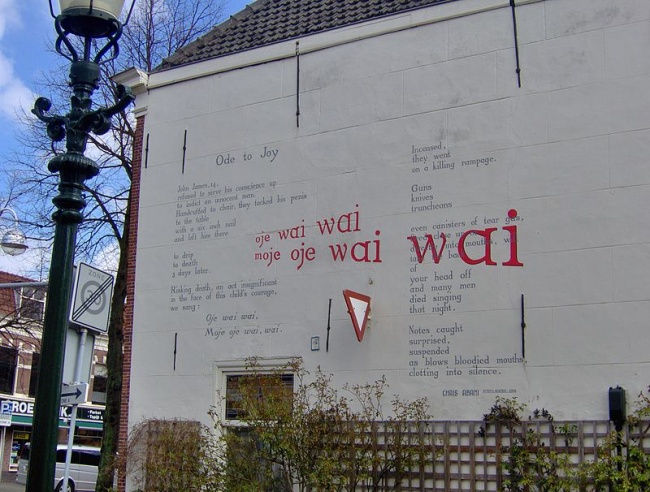 Ode to Joy
John James, 14,
refused to serve his conscience up
to indict an innocent man.
Handcuffed to chair; they tacked his penis
to the table
with a six inch nail
and left him there
to drip
to death
2 days later.
Risking death, an act insignificant
in the face of this child's courage,
we sang:
Oje wai wai,
Moje oje wai, wai.
Incensed,
they went
on a killing rampage.
Guns
knives
truncheons
even canisters of tear gas,
mouths,
of
your head off
and many men
died singing
that night.
Notes caught
surprised,
suspended
as blows bloodied mouths
clotting into silence.
CHRIS ABANI
oje wai wai
moje oje wai wai
ZONE
P
ROE